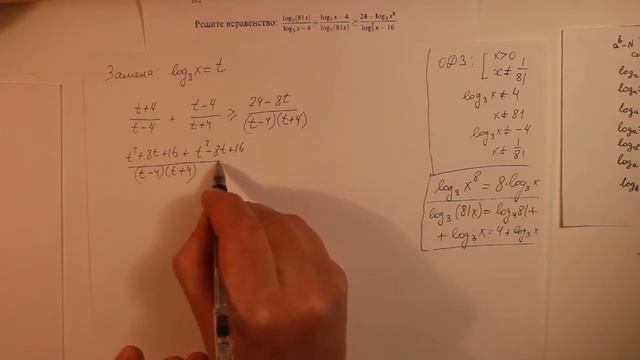 Решите неравенство: log₃(81x)/(log₃x−4) + (log₃x−4)/log₃(81x) ≥ (24−log₃x⁸)/(log₃²x−16)
Замена: log₃x = t
(t+4)/(t−4) + (t−4)/(t+4) ≥ (24−8t)/((t−4)(t+4))
(t²+8t+16 + t²−8t+16)/((t−4)(t+4))
ОДЗ: [ x>0
x≠ 1/81
log₃x≠4
x≠81
log₃x≠−4
x≠ 1/81
log₃x⁸ = 8·log₃x
log₃(81x) = log₃81 +
+ log₃x = 4 + log₃x
aᵇ−N
logₐ
logₐ
logₐ
logₐ